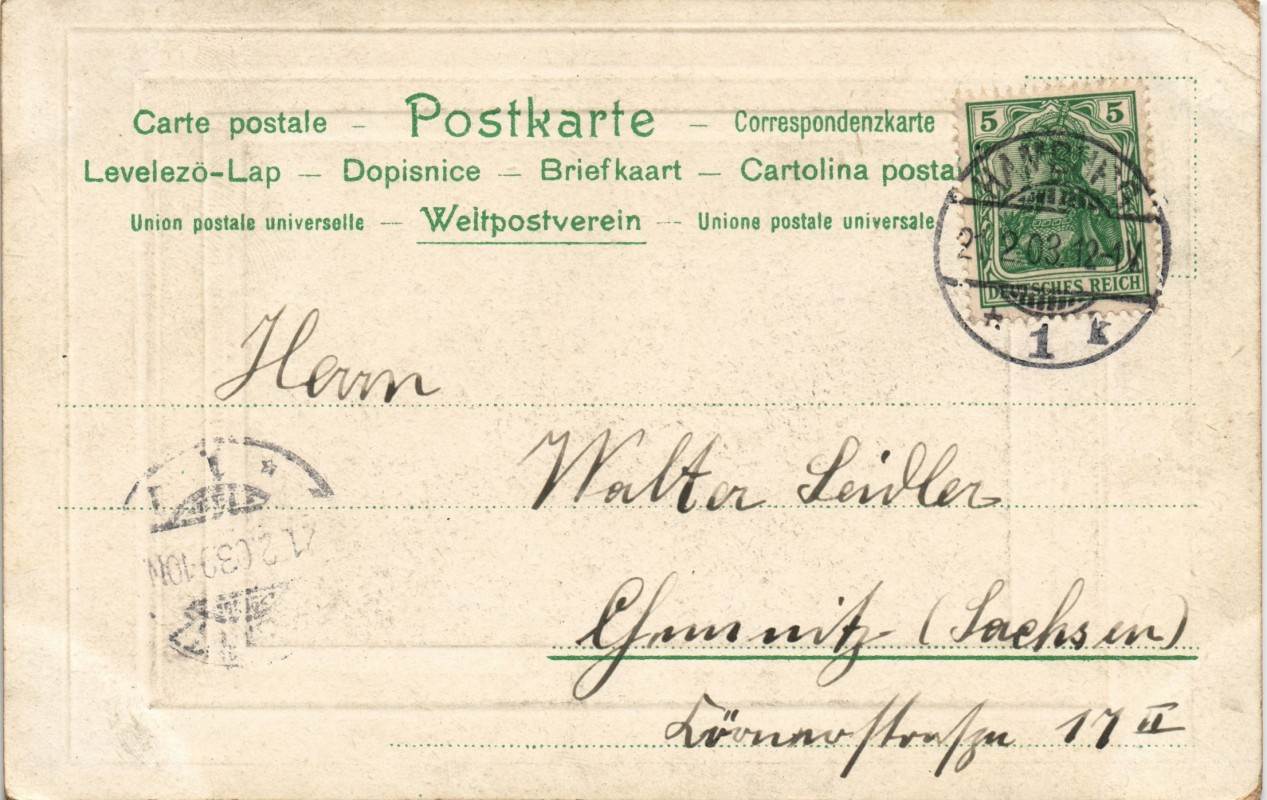 Carte postale – Postkarte – Correspondenzkarte
Levelező-Lap – Dopisnice – Briefkaart – Cartolina posta
Union postale universelle – Weltpostverein – Unione postale universale
5 5
DEUTSCHES REICH
HAMBURG
2.03.12-1
* 1 k
Herrn
Walter Seidler
Chemnitz (Sachsen)
Körnerstraße 17 II